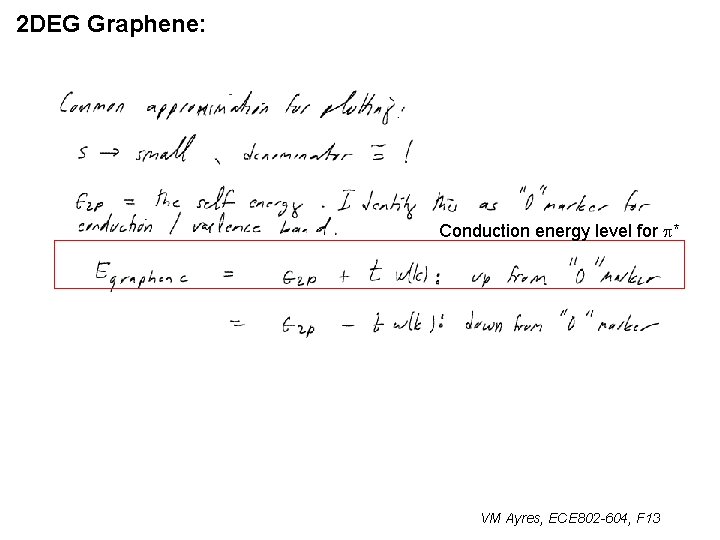 2DEG Graphene:
Common approximation for plotting:
s → small, denominator ≡ 1
ϵ2p = the self energy. I identify this as "0" marker for
conduction / valence band.
Conduction energy level for π*
Egraphene = ϵ2p + t w(k): up from "0" marker
= ϵ2p - t w(k): down from "0" marker
VM Ayres, ECE802-604, F13